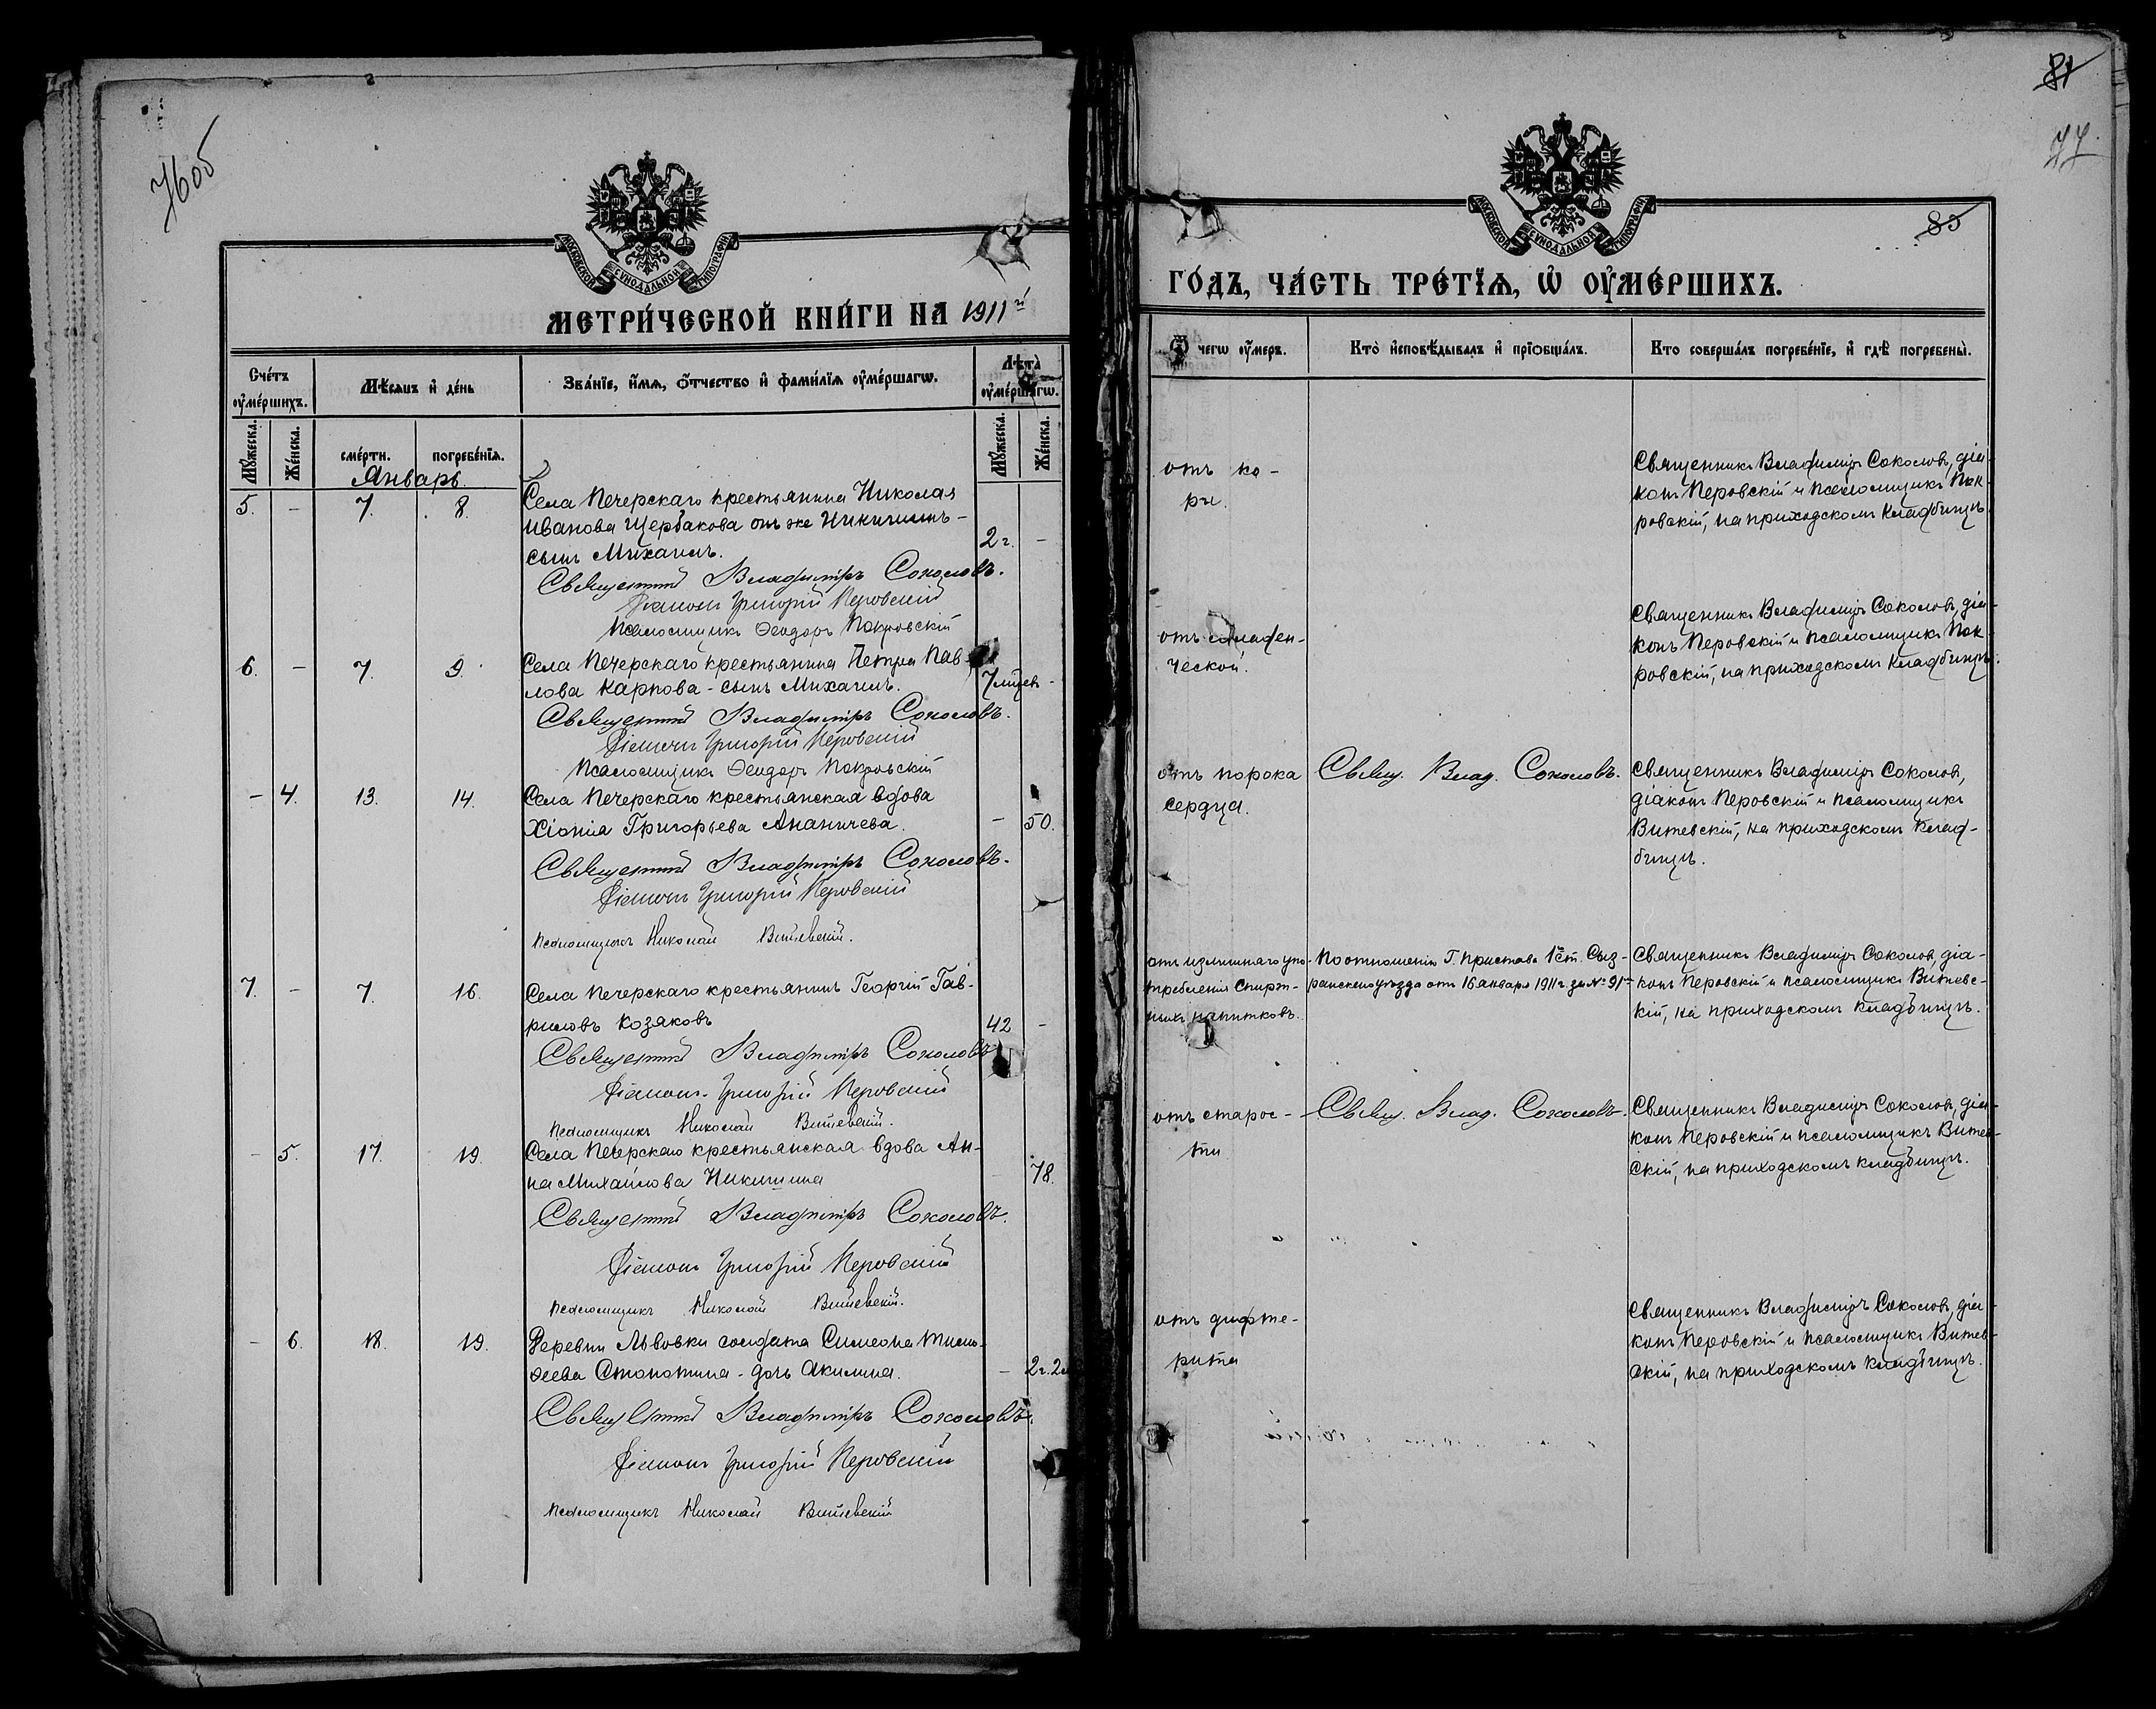 76об
МОСКОВСКОЙ СѴНОДАЛЬНОЙ ТИПОГРАФІИ
МЕТРИ́ЧЕСКОЙ КНИ́ГИ НА 1911й
Сче́тъ оу҆ме́ршихъ.
Мѣ́сяцъ и҆ де́нь
Зва́нїе, и҆́мѧ, ѻ҆́тчество и҆ фами́лїѧ оу҆ме́ршагѡ.
Лѣ́та оу҆ме́ршагѡ.
Мꙋ́жеска.
Же́нска.
сме́рти.
погребе́нїѧ.
Мꙋ́жеска.
Же́нска.
Январь.
5. - 7. 8. Села Печерскаго крестьянина Николая
Иванова Щербакова онъ же Никитинъ -
сынъ Михаилъ. 2 г. -
Священникъ Владиміръ Соколовъ.
Діаконъ Григорій Перовскій
Псаломщикъ Ѳеодоръ Покровскій
6. - 7. 9. Села Печерскаго крестьянина Петра Пав-
лова Карпова - сынъ Михаилъ. 7 мцев -
Священникъ Владиміръ Соколовъ.
Діаконъ Григорій Перовскій
Псаломщикъ Ѳеодоръ Покровскій
- 4. 13. 14. Села Печерскаго крестьянская вдова
Хіонія Григорьева Ананичева. - 50.
Священникъ Владиміръ Соколовъ.
Діаконъ Григорій Перовскій
Псаломщикъ Николай Витевскій.
7. - 7. 16. Села Печерскаго крестьянинъ Георгій Гав-
риловъ Козяковъ 42 -
Священникъ Владиміръ Соколовъ
Діаконъ Григорій Перовскій
Псаломщикъ Николай Витевскій.
- 5. 17. 19. Села Печерскаго крестьянская вдова Ан-
на Михайлова Никитина 78.
Священникъ Владиміръ Соколовъ.
Діаконъ Григорій Перовскій
Псаломщикъ Николай Витевскій.
- 6. 18. 19. Деревни Львовки солдата Симеона Тимо-
ѳеева Стопотина - дочь Акилина. - 2 г. 2 м
Священникъ Владиміръ Соколовъ.
Діаконъ Григорій Перовскій
Псаломщикъ Николай Витевскій
81
77.
83
МОСКОВСКОЙ СѴНОДАЛЬНОЙ ТИПОГРАФІИ
ГО́ДЪ, ЧА́СТЬ ТРЕ́ТЇѦ, Ѡ҆ ОУ҆МЕ́РШИХЪ.
Ѿ чегѡ оу҆́меръ.
Кто̀ и҆сповѣ́дывалъ и҆ прїѡбща́лъ.
Кто соверша́лъ погребе́нїе, и҆ гдѣ̀ погребены̀.
отъ ко-
ри.
Священникъ Владиміръ Соколовъ, діа-
конъ Перовскій и псаломщикъ Пок-
ровскій, на приходскомъ кладбищѣ
отъ младен-
ческой.
Священникъ Владиміръ Соколовъ, діа-
конъ Перовскій и псаломщикъ Пок-
ровскій, на приходскомъ кладбищѣ.
отъ порока
сердца.
Свящ. Влад. Соколовъ.
Священникъ Владиміръ Соколовъ,
діаконъ Перовскій и псаломщикъ
Витевскій, на приходскомъ клад-
бищѣ.
отъ излишняго упо-
требленія спирт-
ныхъ напитковъ.
По отношенію Г. Пристава 1 ст. Сыз-
ранскаго уѣзда отъ 16 января 1911 г. за № 91
Священникъ Владиміръ Соколовъ, діа-
конъ Перовскій и псаломщикъ Витевс-
кій, на приходскомъ кладбищѣ.
отъ старос-
ти
Свящ. Влад. Соколовъ.
Священникъ Владиміръ Соколовъ, діа-
конъ Перовскій и псаломщикъ Витев-
скій, на приходскомъ кладбищѣ.
отъ дифте-
рита
Священникъ Владиміръ Соколовъ, діа-
конъ Перовскій и псаломщикъ Витев-
скій, на приходскомъ кладбищѣ.